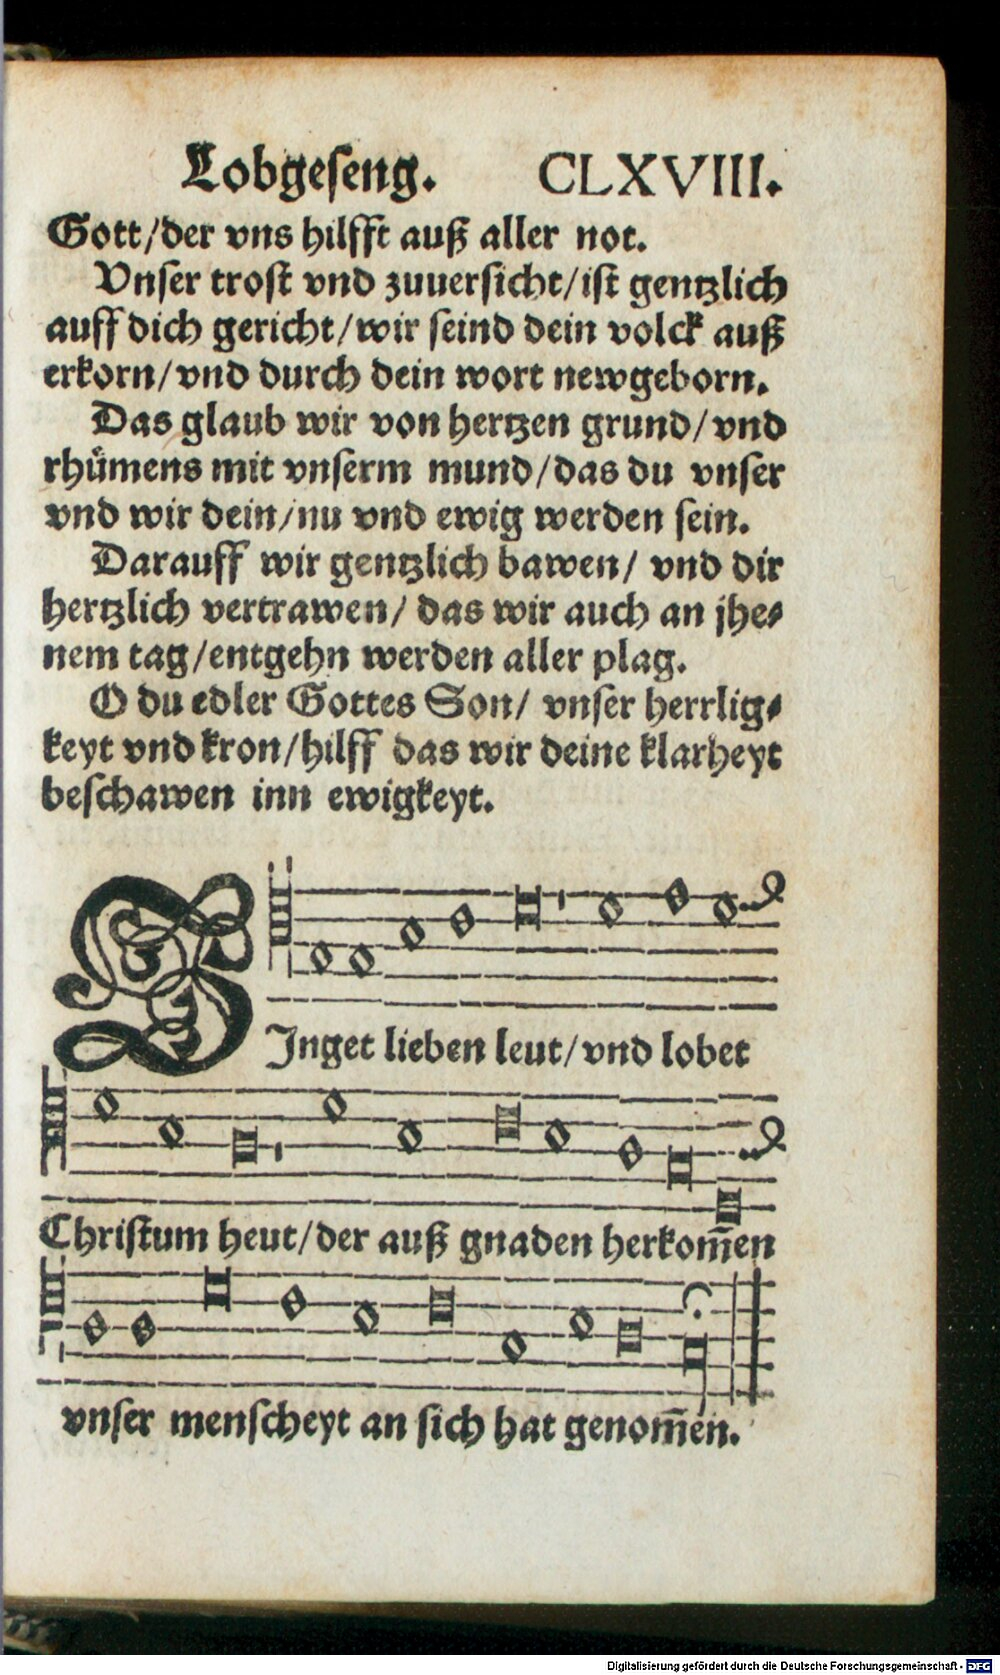 Lobgeseng. CLXVIII.
Gott/der vns hilfft auß aller not.
Vnser trost vnd zuuersicht/ist gentzlich
auff dich gericht/wir seind dein volck auß
erkorn/vnd durch dein wort newgeborn.
Das glaub wir von hertzen grund/vnd
rhuͤmens mit vnserm mund/das du vnser
vnd wir dein/nu vnd ewig werden sein.
Darauff wir gentzlich bawen/ vnd dir
hertzlich vertrawen/ das wir auch an jhe⸗
nem tag/entgehn werden aller plag.
O du edler Gottes Son/ vnser herrlig⸗
keyt vnd kron/hilff das wir deine klarheyt
beschawen inn ewigkeyt.
SInget lieben leut/vnd lobet
Christum heut/der auß gnaden herkom̄en
vnser menscheyt an sich hat genom̄en.
Digitalisierung gefördert durch die Deutsche Forschungsgemeinschaft - DFG